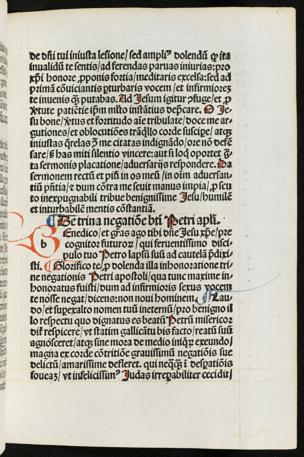 de dñi tui iniusta lesione / sed ampliꝰ dolendũ ꝙ ita
inualidũ te sentis / ad ferendas paruas iniurias: pro
xp̃i honore ꝓponis fortia / meditaris excelsa: sed ad
primã cõuiciantis ꝑturbaris vocem / et infirmiorẽ
te inuenis ꝗ putabas. Ad Jesum igitur ꝓfuge / et ꝓ
su bone / xtus et fortitudo aĩe tribulate / doce me ar
gutiones / et oblocutiões trãqllo corde suscipe / atqꝫ
iniustas qrelas ꝓ me citatas indignãdo / ore nõ defẽ
sare / has miti silentio vincere: aut si loq oportet
ta sermonis placatione / aduersarijs respondere. Da
sermonem rectũ et piũ in os meũ / in oĩm aduersan
tiũ pñtia / dum cõtra me seuit manus impia / ꝓ scu
to inexpugnabili tribue benignissime Jesu / humilẽ
et inturbabilẽ mentis cõstantiã.
De trina negatiõe bti Petri apli.
Benedico / et grãs ago tibi dñe Jesu xp̃e / pre
cognitor futuroꝝ / qui feruentissimo disci
pulo tuo Petro lapsũ suũ ad cautelã p̃dixi
sti. Glorifico te / ꝓ dolenda illa inhonoratione tri
ne negationis Petri apostoli / qua tunc maxime in
honoratus fuisti / dum ad infirmioris sexus vocem
te nosse negat / dicens: non noui hominem. Lau
do / et supexalto nomen tuũ
lo respectu quo dignatus es beatũ Petrũ misericor
diꝰ respicere / vt statim gallicãtu bis facto / reatũ suũ
agnosceret / atqꝫ sine mora de medio iniqꝝ exeundo /
magna ex corde cõtritiõe grauissimũ negatiõis sue
delictũ / amarissime defleret. qui neqꝗ̃ ĩ desꝑatiõis
foueaꝫ / vt infelicissimꝰ Judas irrepabiliter cecidit /